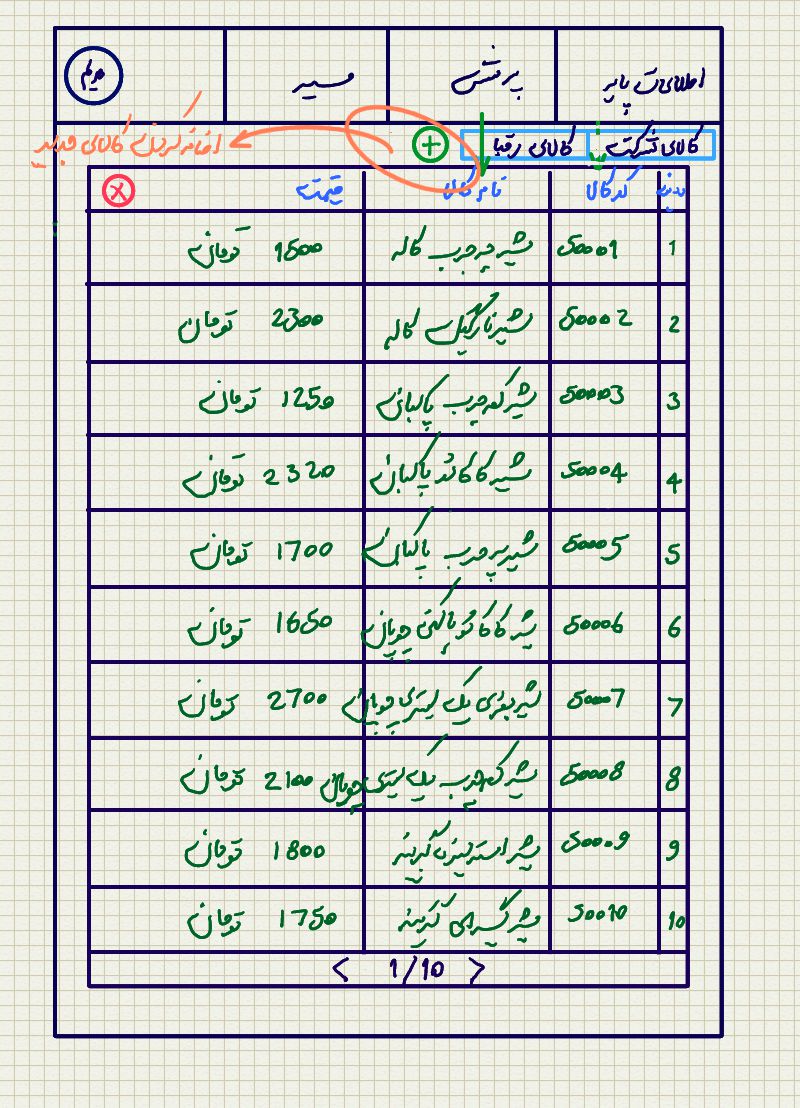 اطلاعات پایه پرسش مسیر مریم
کالای شرکت کالای رقبا + اضافه کردن کالای جدید
ردیف کد کالا نام کالا قیمت X
1 50001 شیر پرچرب کاله 1500 تومان
2 50002 شیر نارگیل کاله 2300 تومان
3 50003 شیر کم چرب پاکبان 1250 تومان
4 50004 شیر کاکائو پاکبان 2320 تومان
5 50005 شیر پر چرب پاکبان 1700 تومان
6 50006 شیر کاکائو پاکتی چوپان 1650 تومان
7 50007 شیر بطری یک لیتری چوپان 2700 تومان
8 50008 شیر کم چرب یک لیتری چوپان 2100 تومان
9 50009 شیر استرلیزه کبینه 1800 تومان
10 50010 شیر کبینه 1750 تومان
< 1/10 >